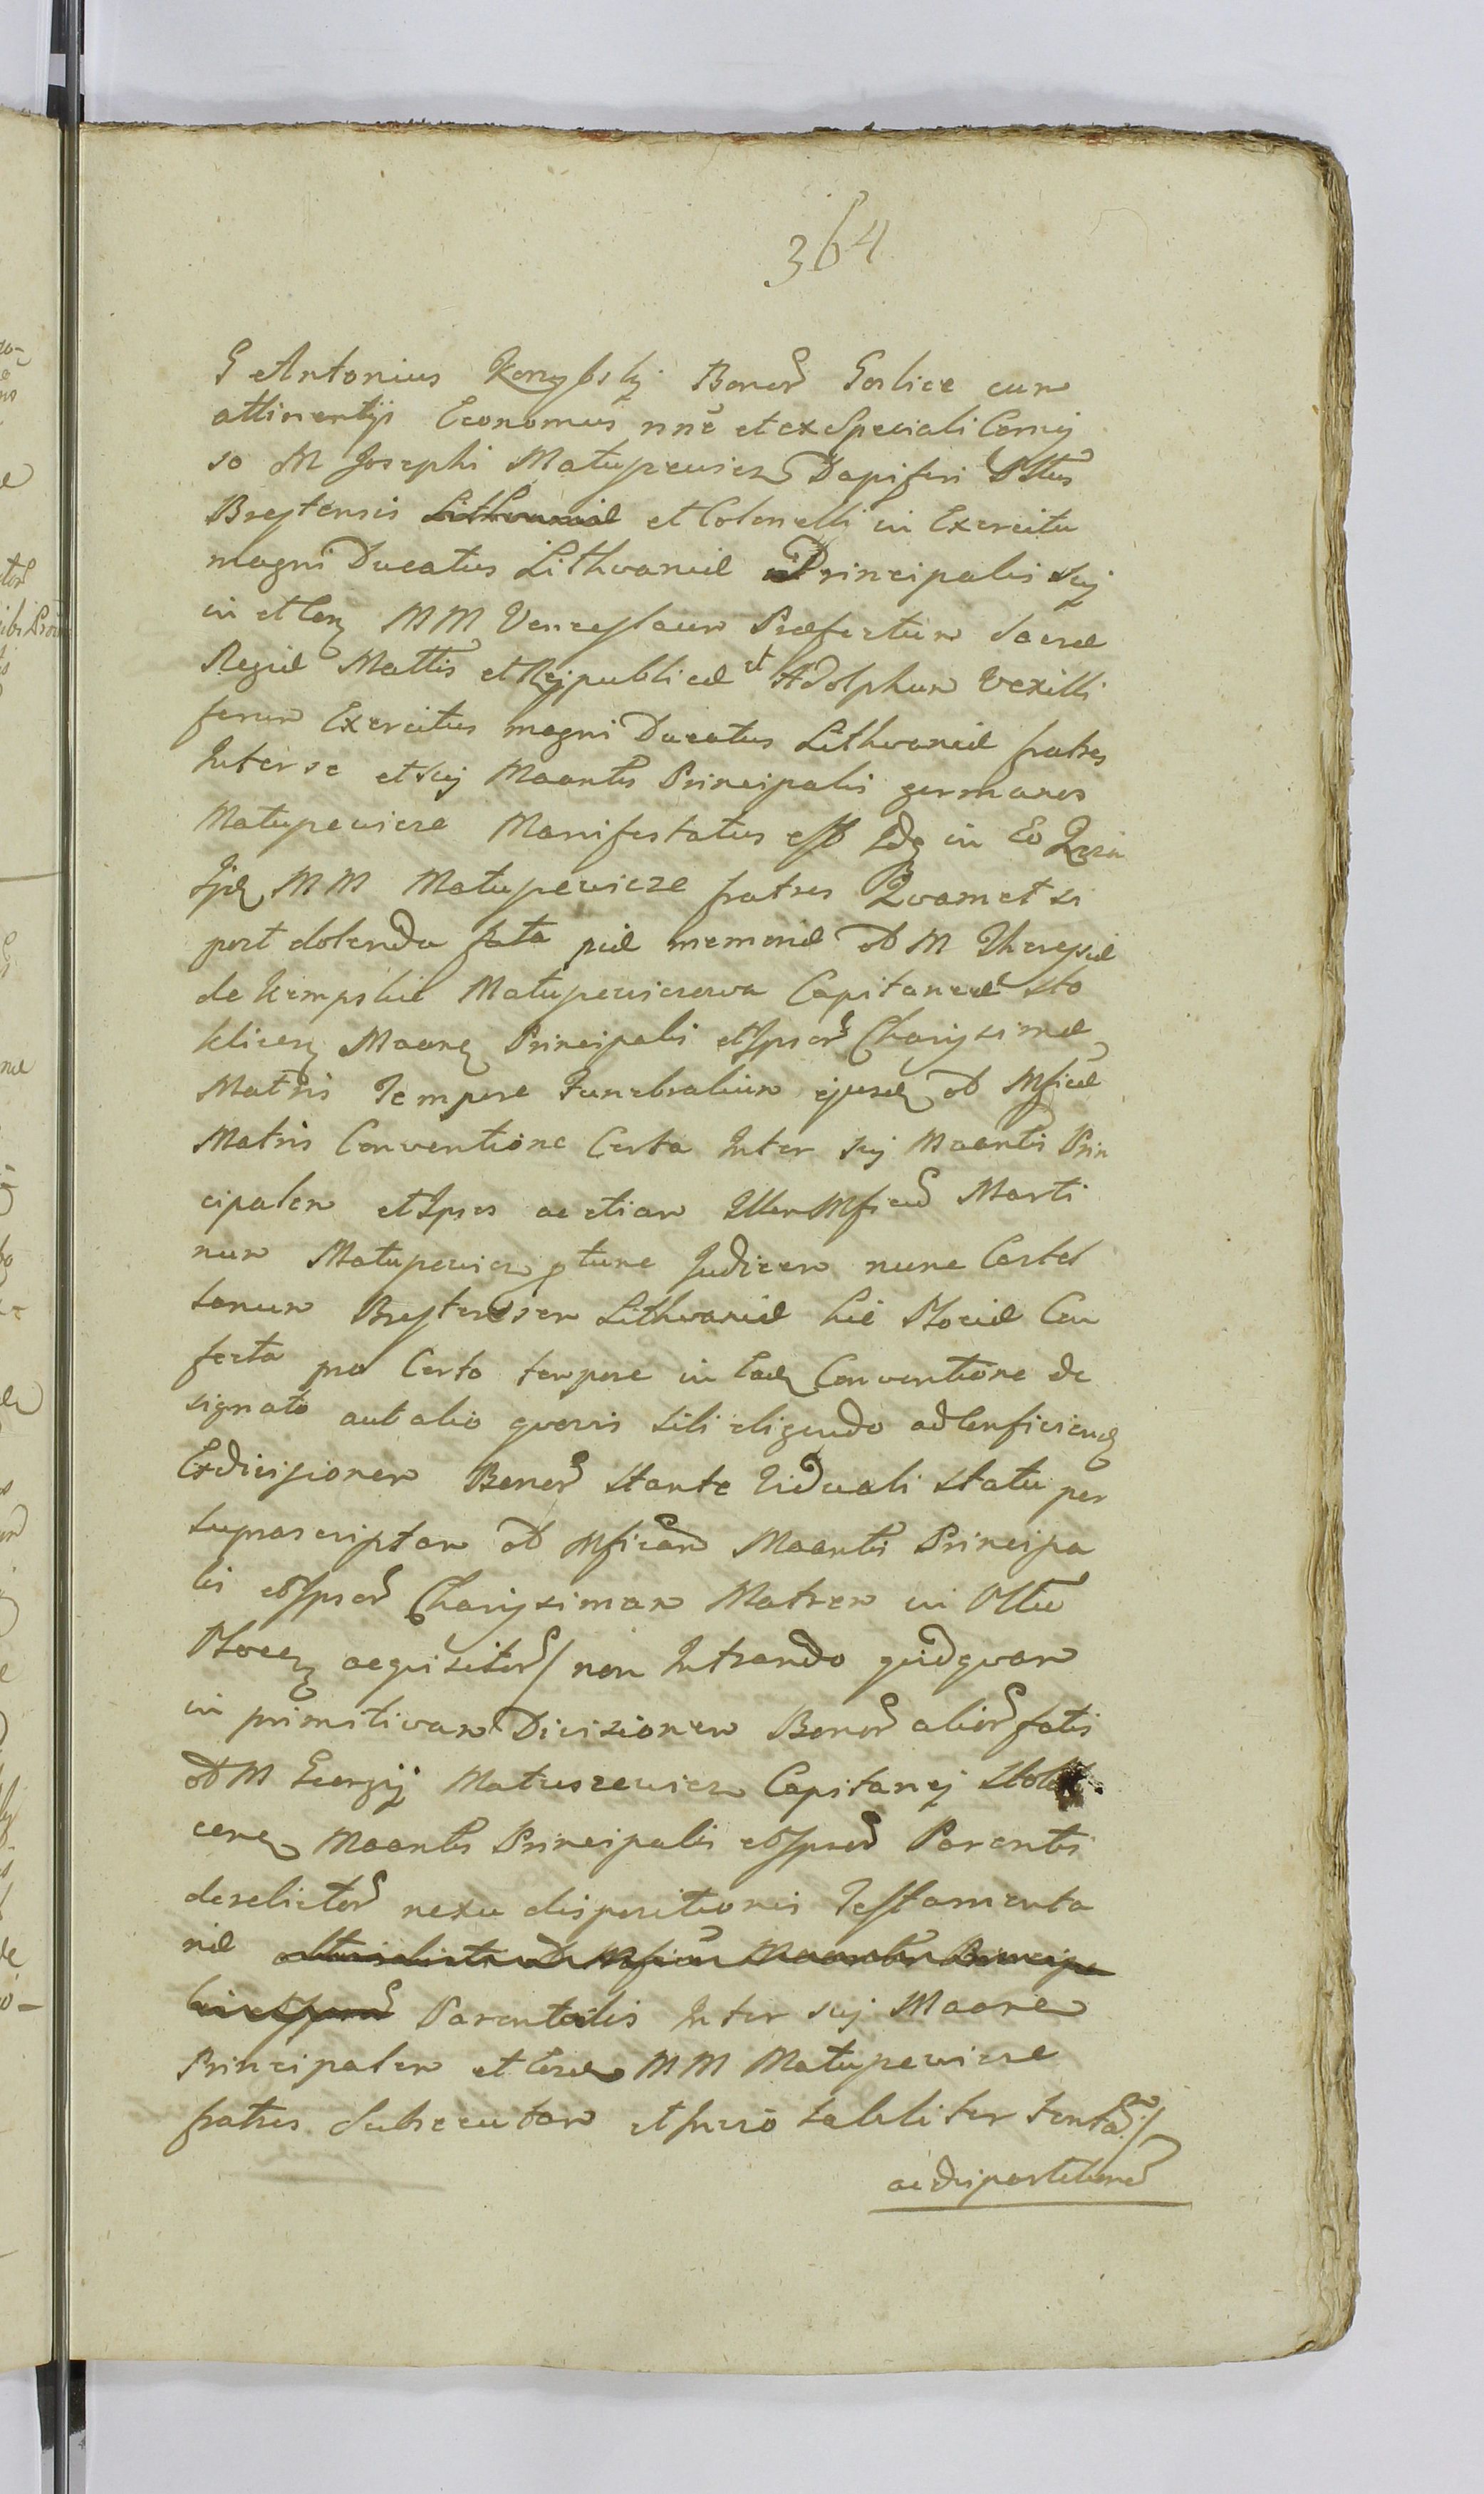 364
G Antonius Konysski Bonor Goslice cum
attinentijs Economus nnē et ex Speciali Comij
so M Josephi Matuszewicz Dapiferi Pttus
Brestensis Lithvaniæ et Colonelli in Exercitu
magni Ducatus Lithvaniæ Principalis sui
in et Con MM Venceslaum Præfectum Sacræ
Regiæ Mattis et Reipublicæ et Adolphum Vexilli
ferum Exercitus magni Ducatus Lithvaniæ fratres
Inter se et sui Maantis Principalis germanos
Matuszewicze Manifestatus est Idq in Eo Quia
Ijd MM Matuszewicze fratres Quamet si
post dolenda fata piæ memoriæ olī M Theresiæ
de Kempskie Matuszewiczowa Capitaneæ Sto
klicen Maanq Principalis et Ipsor Charissimæ
Matris Tempore Funebralium ejusd olī Mficæ
Matris Conventione Certa Inter sui Maantis Prin
cipalem et Ipsos ac etiam Illum Mficum Marti
num Matuszewicz ptunc Judicem nunc Castel
lanum Brestensem Lithvaniæ hic Plociæ Con
fecta pro Certo tempore in Ead Conventione de
signato aut alio quovis sibi eligendo ad Conficiend
Exdivisionem Bonor stante Viduali statu per
suprascriptam olī Mficam Maantis Principa
lis et Ipsor Charissimam Matrem in Pttu
Plocen acquisitor/ non Intrando quidquam
in primitivam Divisionem Bonor alior fatis
olī M Georgij Matuszewicz Capitanei Stokli
cenq Maantis Principalis et Ipsor Parentis
derelictor nexu dispositionis Testamenta
riæ
lis et Ipsor Parentalis Inter sui Maanem
Principalem et Eosd MM Matuszewicze
fratres Subsecutam
ac dispartitione